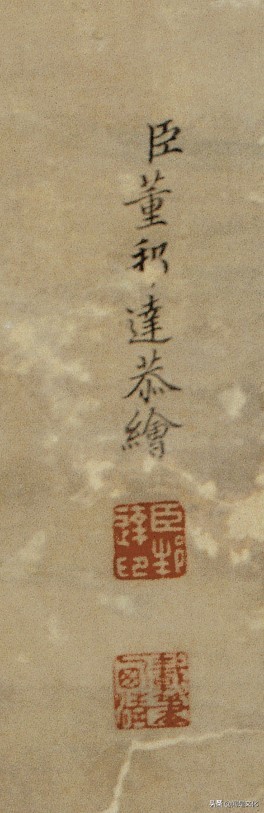 臣董邦達恭繪
臣邦
達印